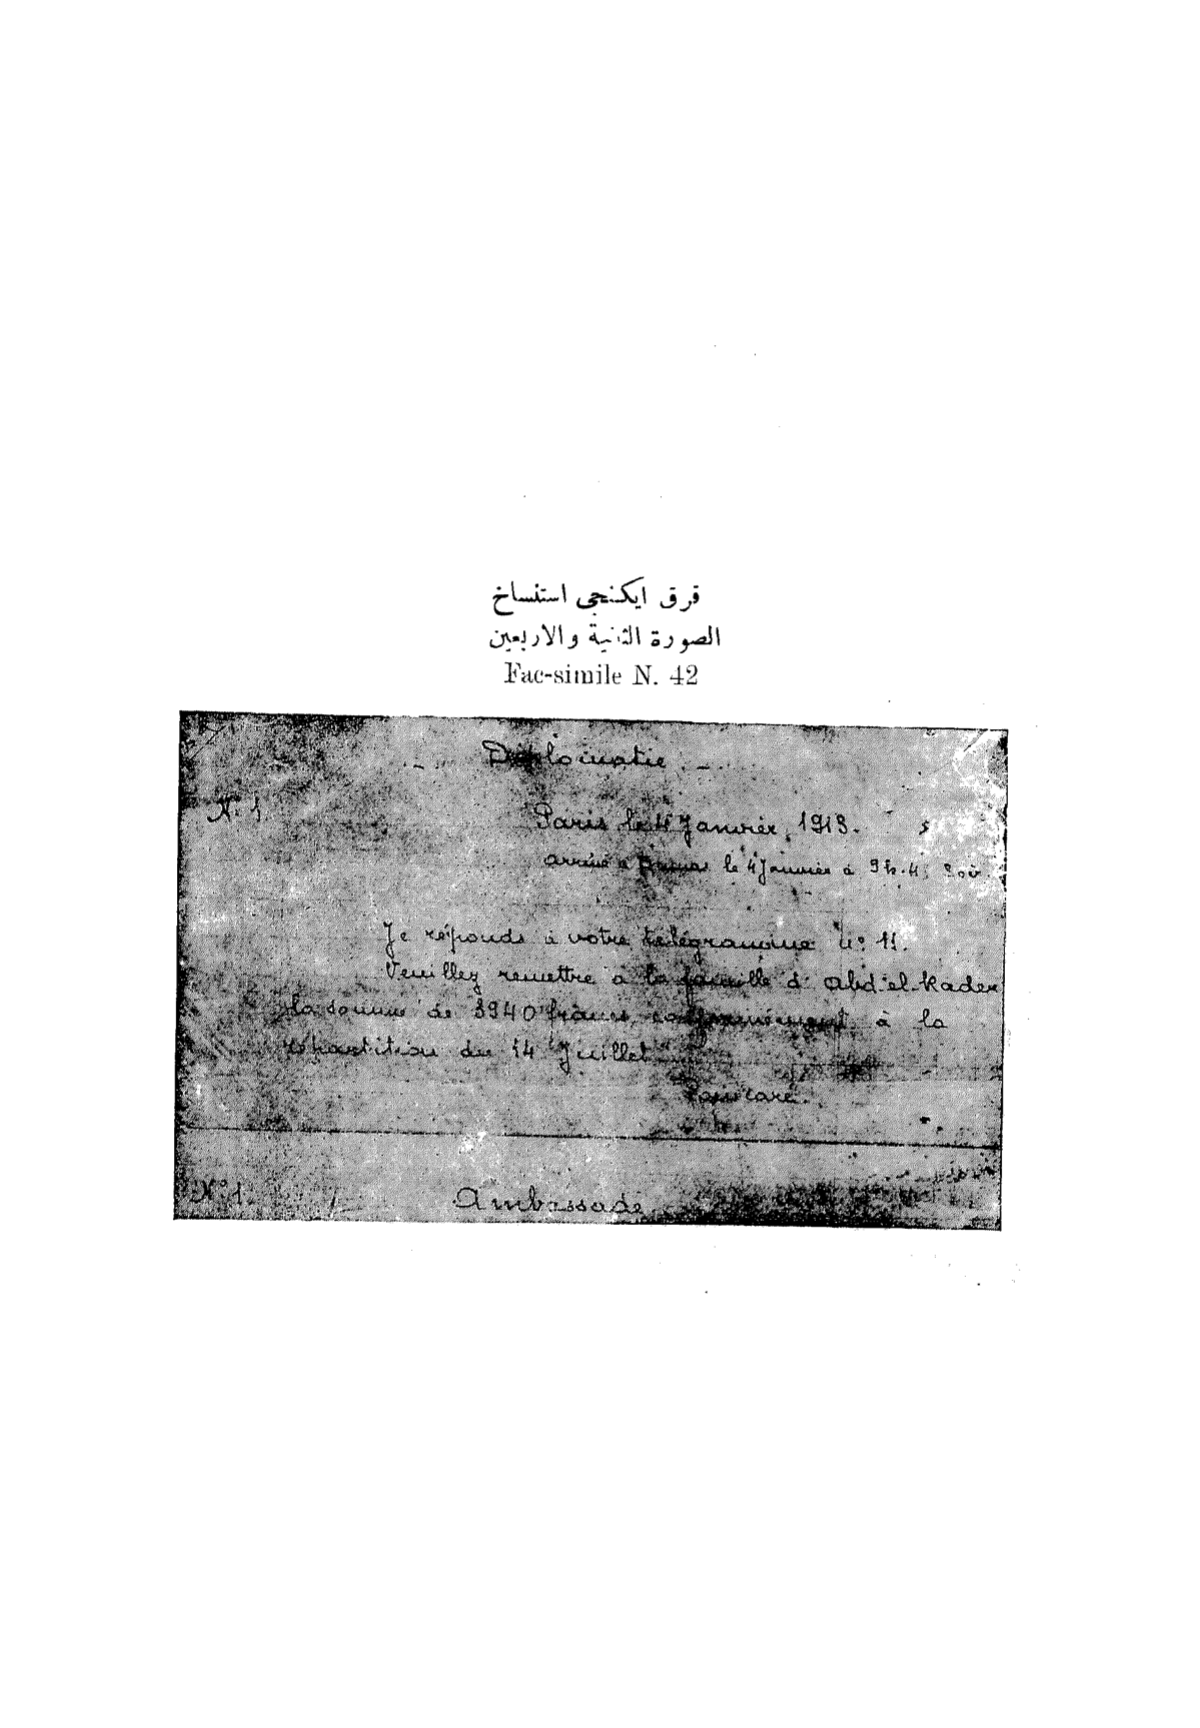 قرق ایکنجی استنساخ
الصورة الثانية والاربعين
Fac-simile N. 42
Diplomatie
N. 1
Paris le 4 Janvier, 1913.
arrivé à Damas le 4 Janvier à 9 h.
Je réponds à votre télégramme n° 11.
Veuillez remettre à la famille d'Abd-el-Kader
la somme de 3940 francs, conformément à la
répartition du 14 Juillet
Poincaré.
N° 1. Ambassade